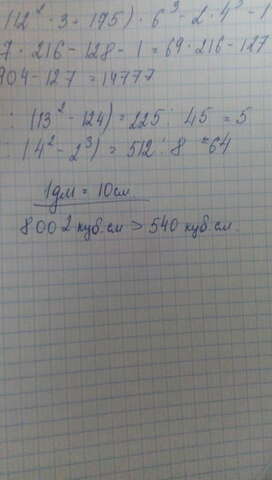 (12² · 3 - 195) · 6³ - 2 · 4³ - 1
7 · 216 - 128 - 1 = 69 · 216 - 127
904 - 127 = 14777
: (13² - 124) = 225 : 45 = 5
: (4² - 2³) = 512 : 8 = 64
1дм = 10см
8002 куб.см > 540 куб.см.